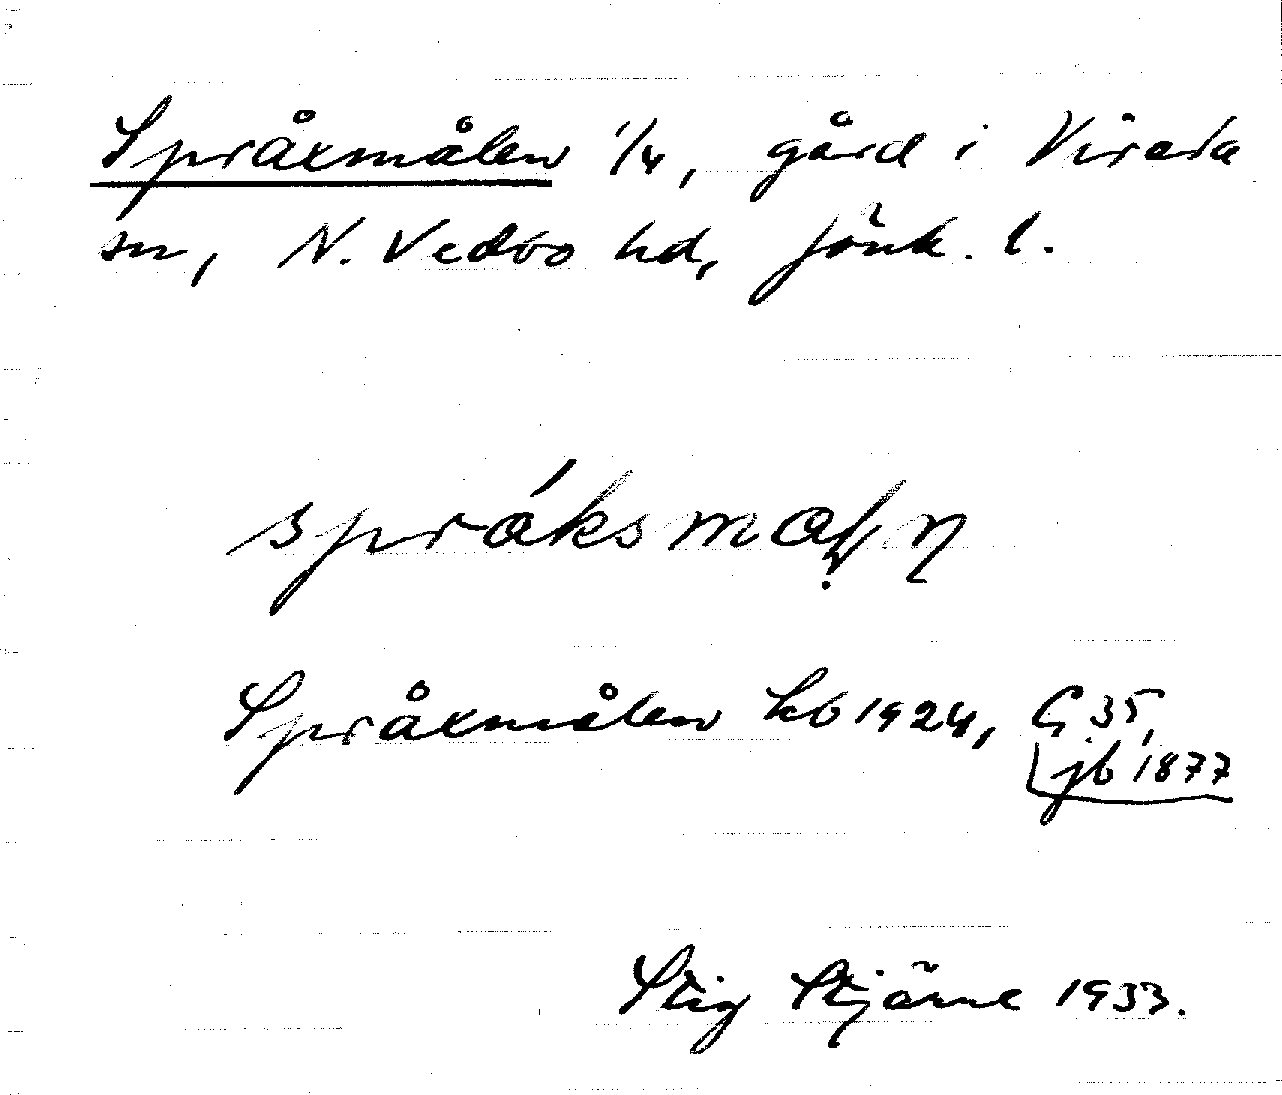 Språxmålen 1/4, gård i Vireda
sn, N. Vedbo hd, Jönk. l.
språksmoļn
Språxmålen kb 1924, G 35,
jb 1877
Stig Stjärne 1933.